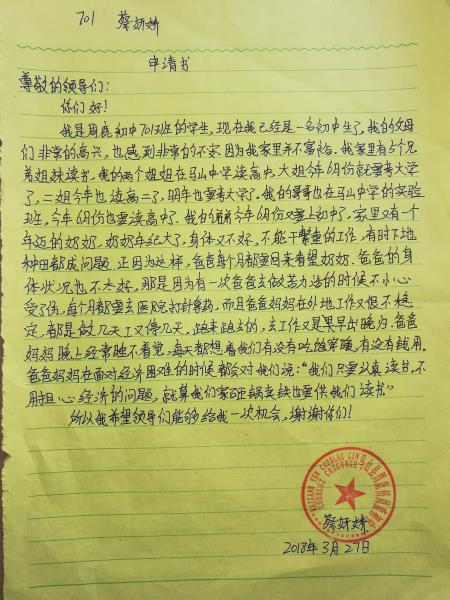 701 蔡妍娇
申请书
尊敬的领导们：
你们好！
我是周鹿初中701班的学生，现在我已经是一名初中生了，我的父母
们非常的高兴，也感到非常的不安。因为我家里并不富裕。我家里有5个兄
弟姐妹读书。我的两个姐姐在马山中学读高中。大姐今年6月份就要考大学
了，二姐今年也读高二了，明年也要考大学了。我的哥哥也在马山中学的实验
班，今年6月份也要读高中了。我的弟弟今年6月份又要上初中了，家里又有一个
年迈的奶奶，奶奶年纪大了，身体又不好，不能干繁重的工作，有时下地
种田都成问题。正因为这样，爸爸每个月都要回来看望奶奶。爸爸的身
体状况也不太好，那是因为有一次爸爸去做苦力活的时候不小心
受了伤，每个月都要去医院打针拿药，而且爸爸妈妈在外地工作又很不稳
定，都是做几天工又停几天，跑来跑去的，去工作又是早出晚归。爸爸
妈妈晚上经常睡不着觉，每天都想着我们有没有吃饱穿暖，有没有钱用。
爸爸妈妈在面对经济困难的时候都会对我们说：“我们只要认真读书，不
用担心经济的问题，就算我们家砸锅卖铁也要供我们读书”
所以我希望领导们能够给我一次机会，谢谢你们！
蔡妍娇
2018年3月27日